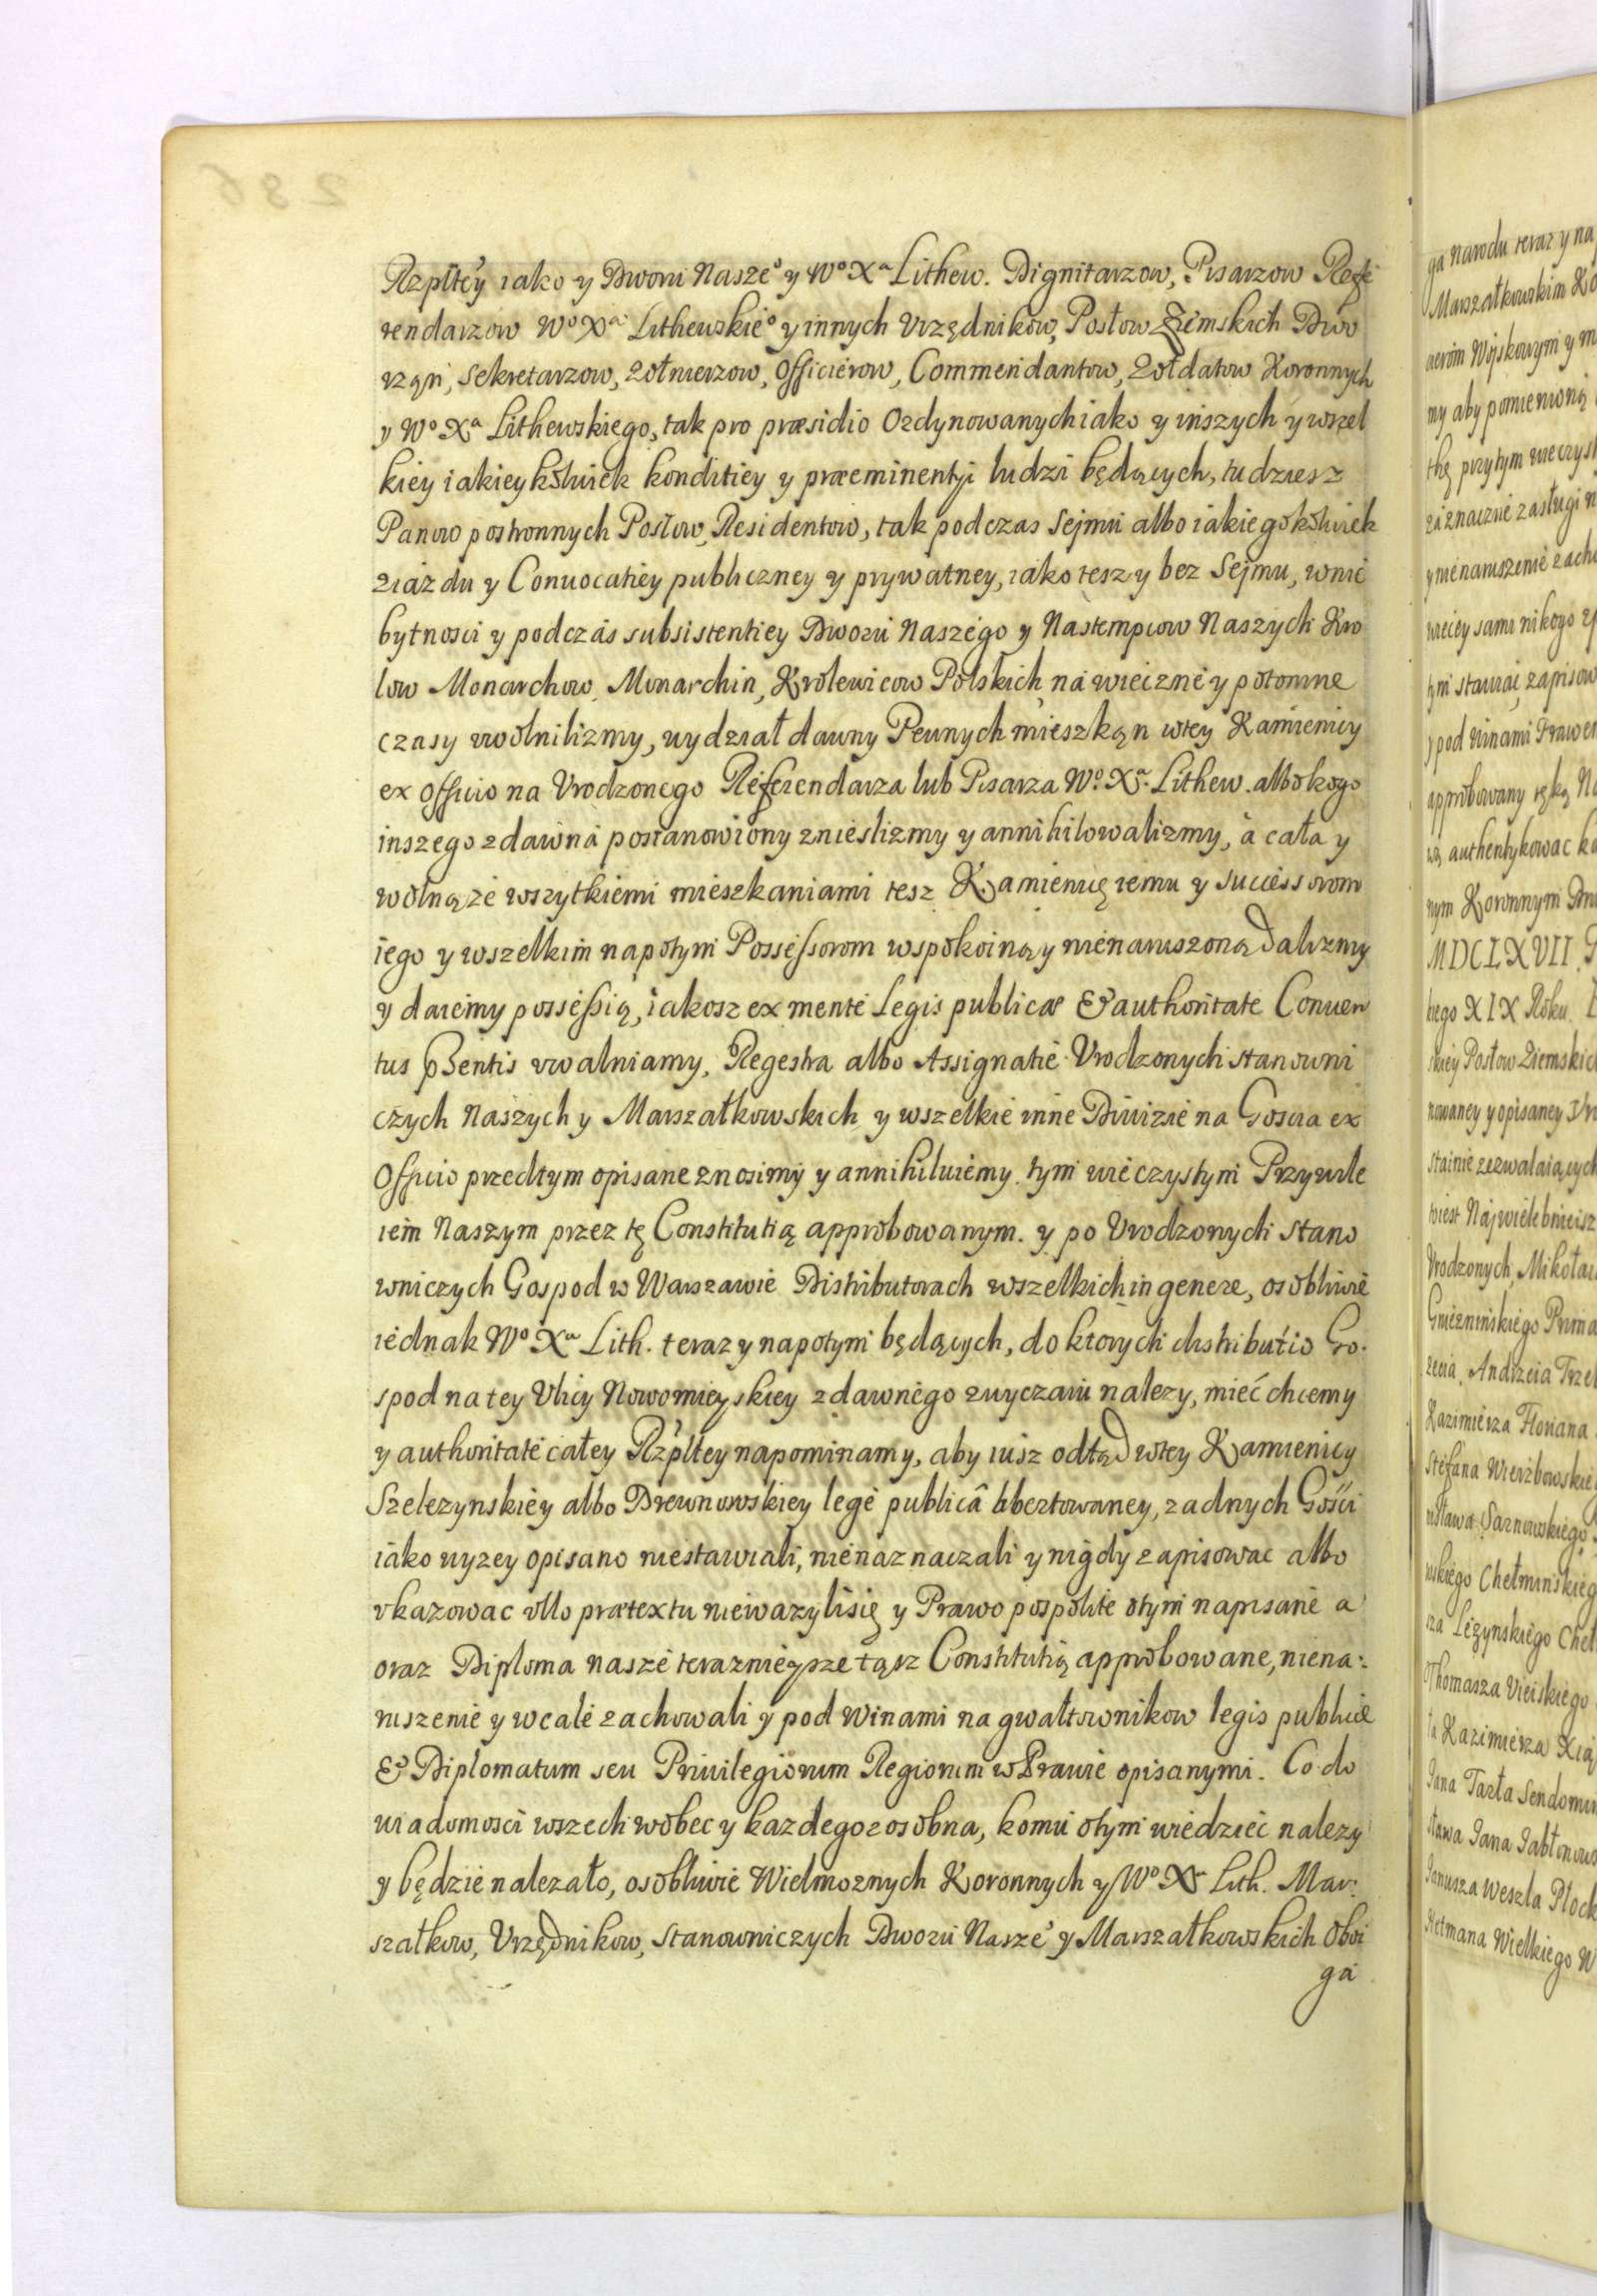 Rzpltey iako y Dworu Nasze° y W° Xa Lithew. Dignitarzow, Pisarzow Refe
rendarzow W° Xa Lithewskie° y innych Vrzędnikow, Posłow Ziemskich Dwo
rząn, Sekretarzow, Zołnierzow, Officierow, Commendantow, Zołdatow Koronnych
y W° Xa Lithewskiego, tak pro præsidio Ordynowanych iako y inszych y wszel
kiey iakieykolwiek konditiey y præeminentyi ludzi będących, tudziesz
Panow postronnych Posłow, Residentow, tak podczas Sejmu albo iakiegokolwiek
ziazdu y Conuocatiey publiczney y prywatney, iako tesz y bez Sejmu, wnie
bytnosci y podczas subsistentiey Dworu Naszego y Nastempcow Naszych Kro
low Monarchow, Monarchin, Krolewicow Polskich na wieczne y potomne
czasy vwolnilizmy, wydział dawny Pewnych mieszkąn wtey Kamienicy
ex officio na Vrodzonego Referendarza lub Pisarza W°. Xa. Lithew. albo kogo
inszego zdawna postanowiony znieslizmy y annihilowalizmy, a cała y
wolną ze wszytkiemi mieszkaniami tesz Kamienicę iemu y successorom
iego y wszelkim napotym Possessorom wspokoiną y nienaruszoną Dalizmy
y daiemy possessią, iakosz ex mente Legis publicæ & authoritate Conuen
tus Psentis vwalniamy, Regestra albo Assignatie Vrodzonych stanowni
czych Naszych y Marszałkowskich y wszelkie inne Diuizie na Goscia ex
Officio przedtym opisane znosimy y annihiluiemy. tym wieczystym Przywile
iem Naszym przez tę Constitutią approbowanym. y po Vrodzonych Stano
wniczych Gospod w Warszawie Distributorach wszelkich in genere, osobliwie
iednak W° Xa Lith. teraz y napotym będących, do ktorych distributio Go.
spod na tey Vlicy Nowomieyskiey zdawnego zwyczaiu nalezy, mieć chcemy
y authoritate całey Rzpltey napominamy, aby iusz odtąd wtey Kamienicy
Szelezynskiey albo Drewnowskiey lege publicâ libertowaney, zadnych Gości
iako wyzey opisano niestawiali, nienaznaczali y nigdy zapisowac albo
vkazowac vllo prætextu niewazylisię y Prawo pospolite otym napisane a
oraz Diploma nasze terazniejsze tąsz Constitutią approbowane, niena:
ruszenie y wcale zachowali y pod Winami na gwałtownikow legis publicæ
& Diplomatum seu Priuilegiorum Regiorum w Prawie opisanymi. Co do
wiadomosci wszech wobec y kazdego zosobna, komu otym wiedziec nalezy
y będzie nalezało, osobliwie Wielmoznych Koronnych y W° Xa Lith. Mar:
szałkow, Vrzędnikow, Stanowniczych Dworu Nasze° y Marszałkowskich Oboi
ga
ga narodu teraz y na
Marszałkowskim Ko
my aby pomienioną
tkę przytym wieczyst
zaznacznie zasługi n
y nienaruszenie zach
wiecey sami nikogo
tym stawiać, zapisow
y pod winami Prawem
approbowany ręką Na
authentykowac ka
nym Koronnym
MDCLXVII.
kiego XIX Roku.
Posłow Ziemskic
nowaney y opisaney
stainie zezwalaiących
Najwielebnieisz
Vrodzonych, Mikołai
Gnieznińskiego Prima
zecia, Andrzeia Trze
Kazimierza Floriana
Stefana Wierzbowskie
Sarnowskiego
Chełminskieg
Lezynskiego Cheł
Thomasza Vieiskiego
Kazimierza Xią
Jana Tarła Sendomir
sława Jana Jabłonows
Janusza Wessla Płock
Hetmana Wielkiego W